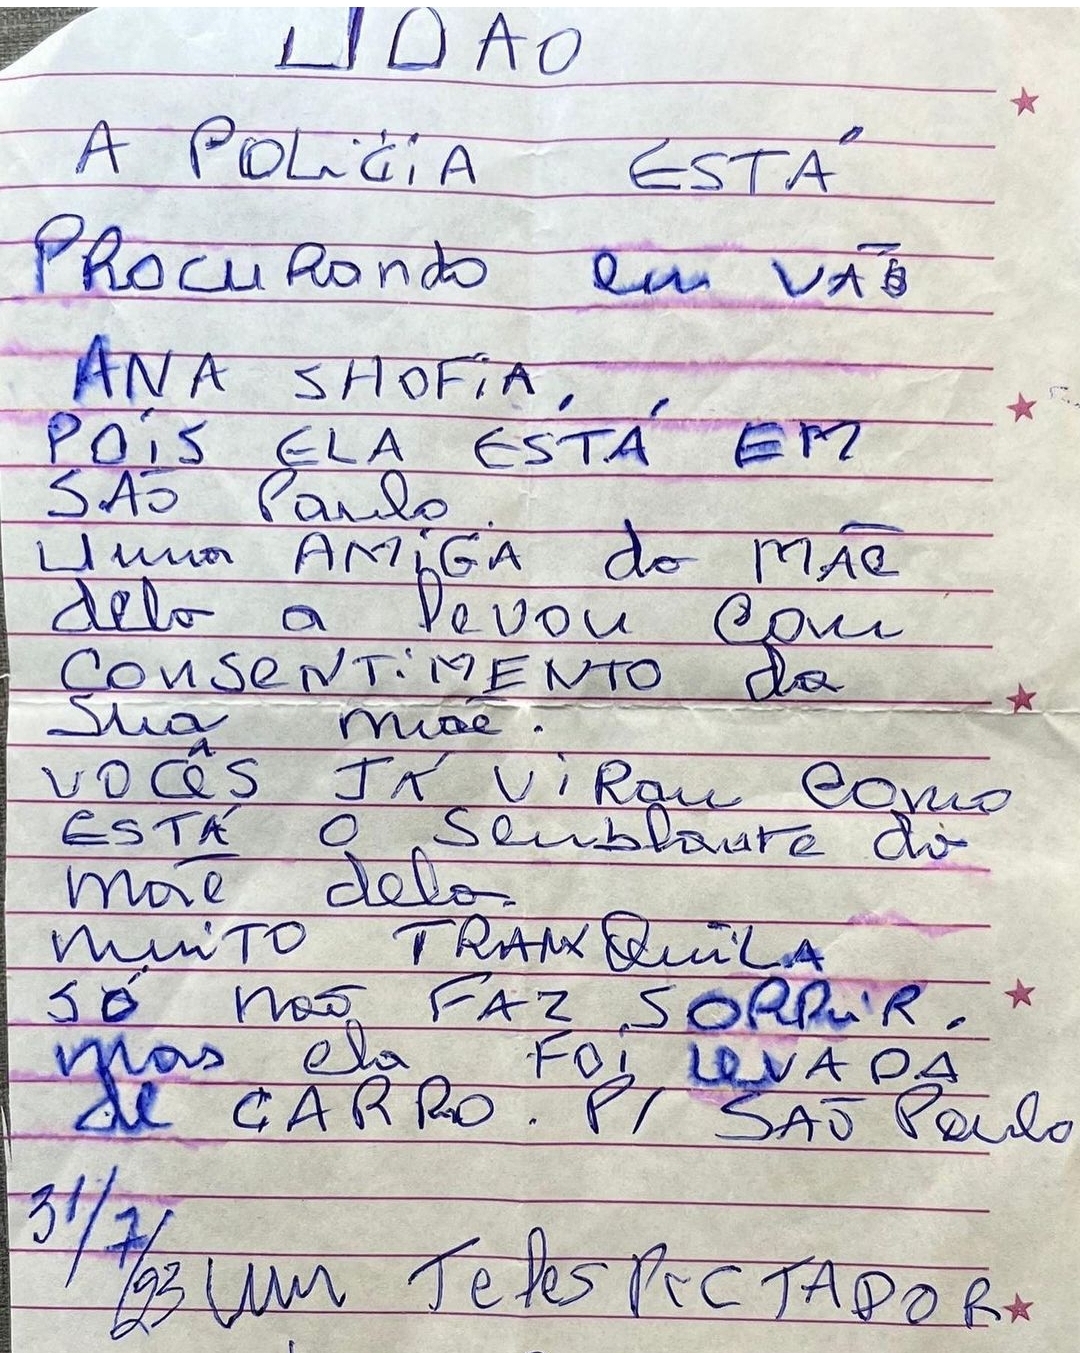 A POLiCiA ESTÁ
PROCURando em VÃO
ANA SHOFiA,
POiS ELA ESTÁ EM
SÃO Paulo.
Uma AMiGA da MÃE
dela a levou com
CONSENTiMENTO da
Sua mãe.
VOCÊS JÁ ViRam como
ESTÁ O Semblante da
mãe dela.
muiTO TRANXQuiLA
SÓ não FAZ SORRiR.
mas ela FOi LEVADA
de CARRO. P/ SÃO Paulo
31/7/23 Um TelesPECTADOR